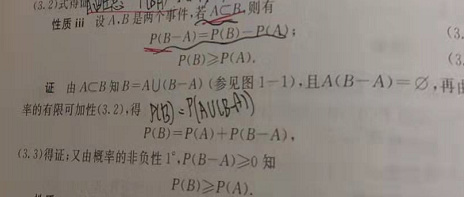 (3.2)式得证
性质 iii 设 A,B 是两个事件,若 A⊂B,则有
P(B−A)=P(B)−P(A);
(3.
P(B)≥P(A).
(3.
证 由 A⊂B 知 B=A∪(B−A) (参见图 1−1),且 A(B−A)=∅,再由
率的有限可加性(3.2),得 P(B)=P(A∪(B-A))
P(B)=P(A)+P(B−A),
(3.3)得证;又由概率的非负性 1°,P(B−A)≥0 知
P(B)≥P(A).